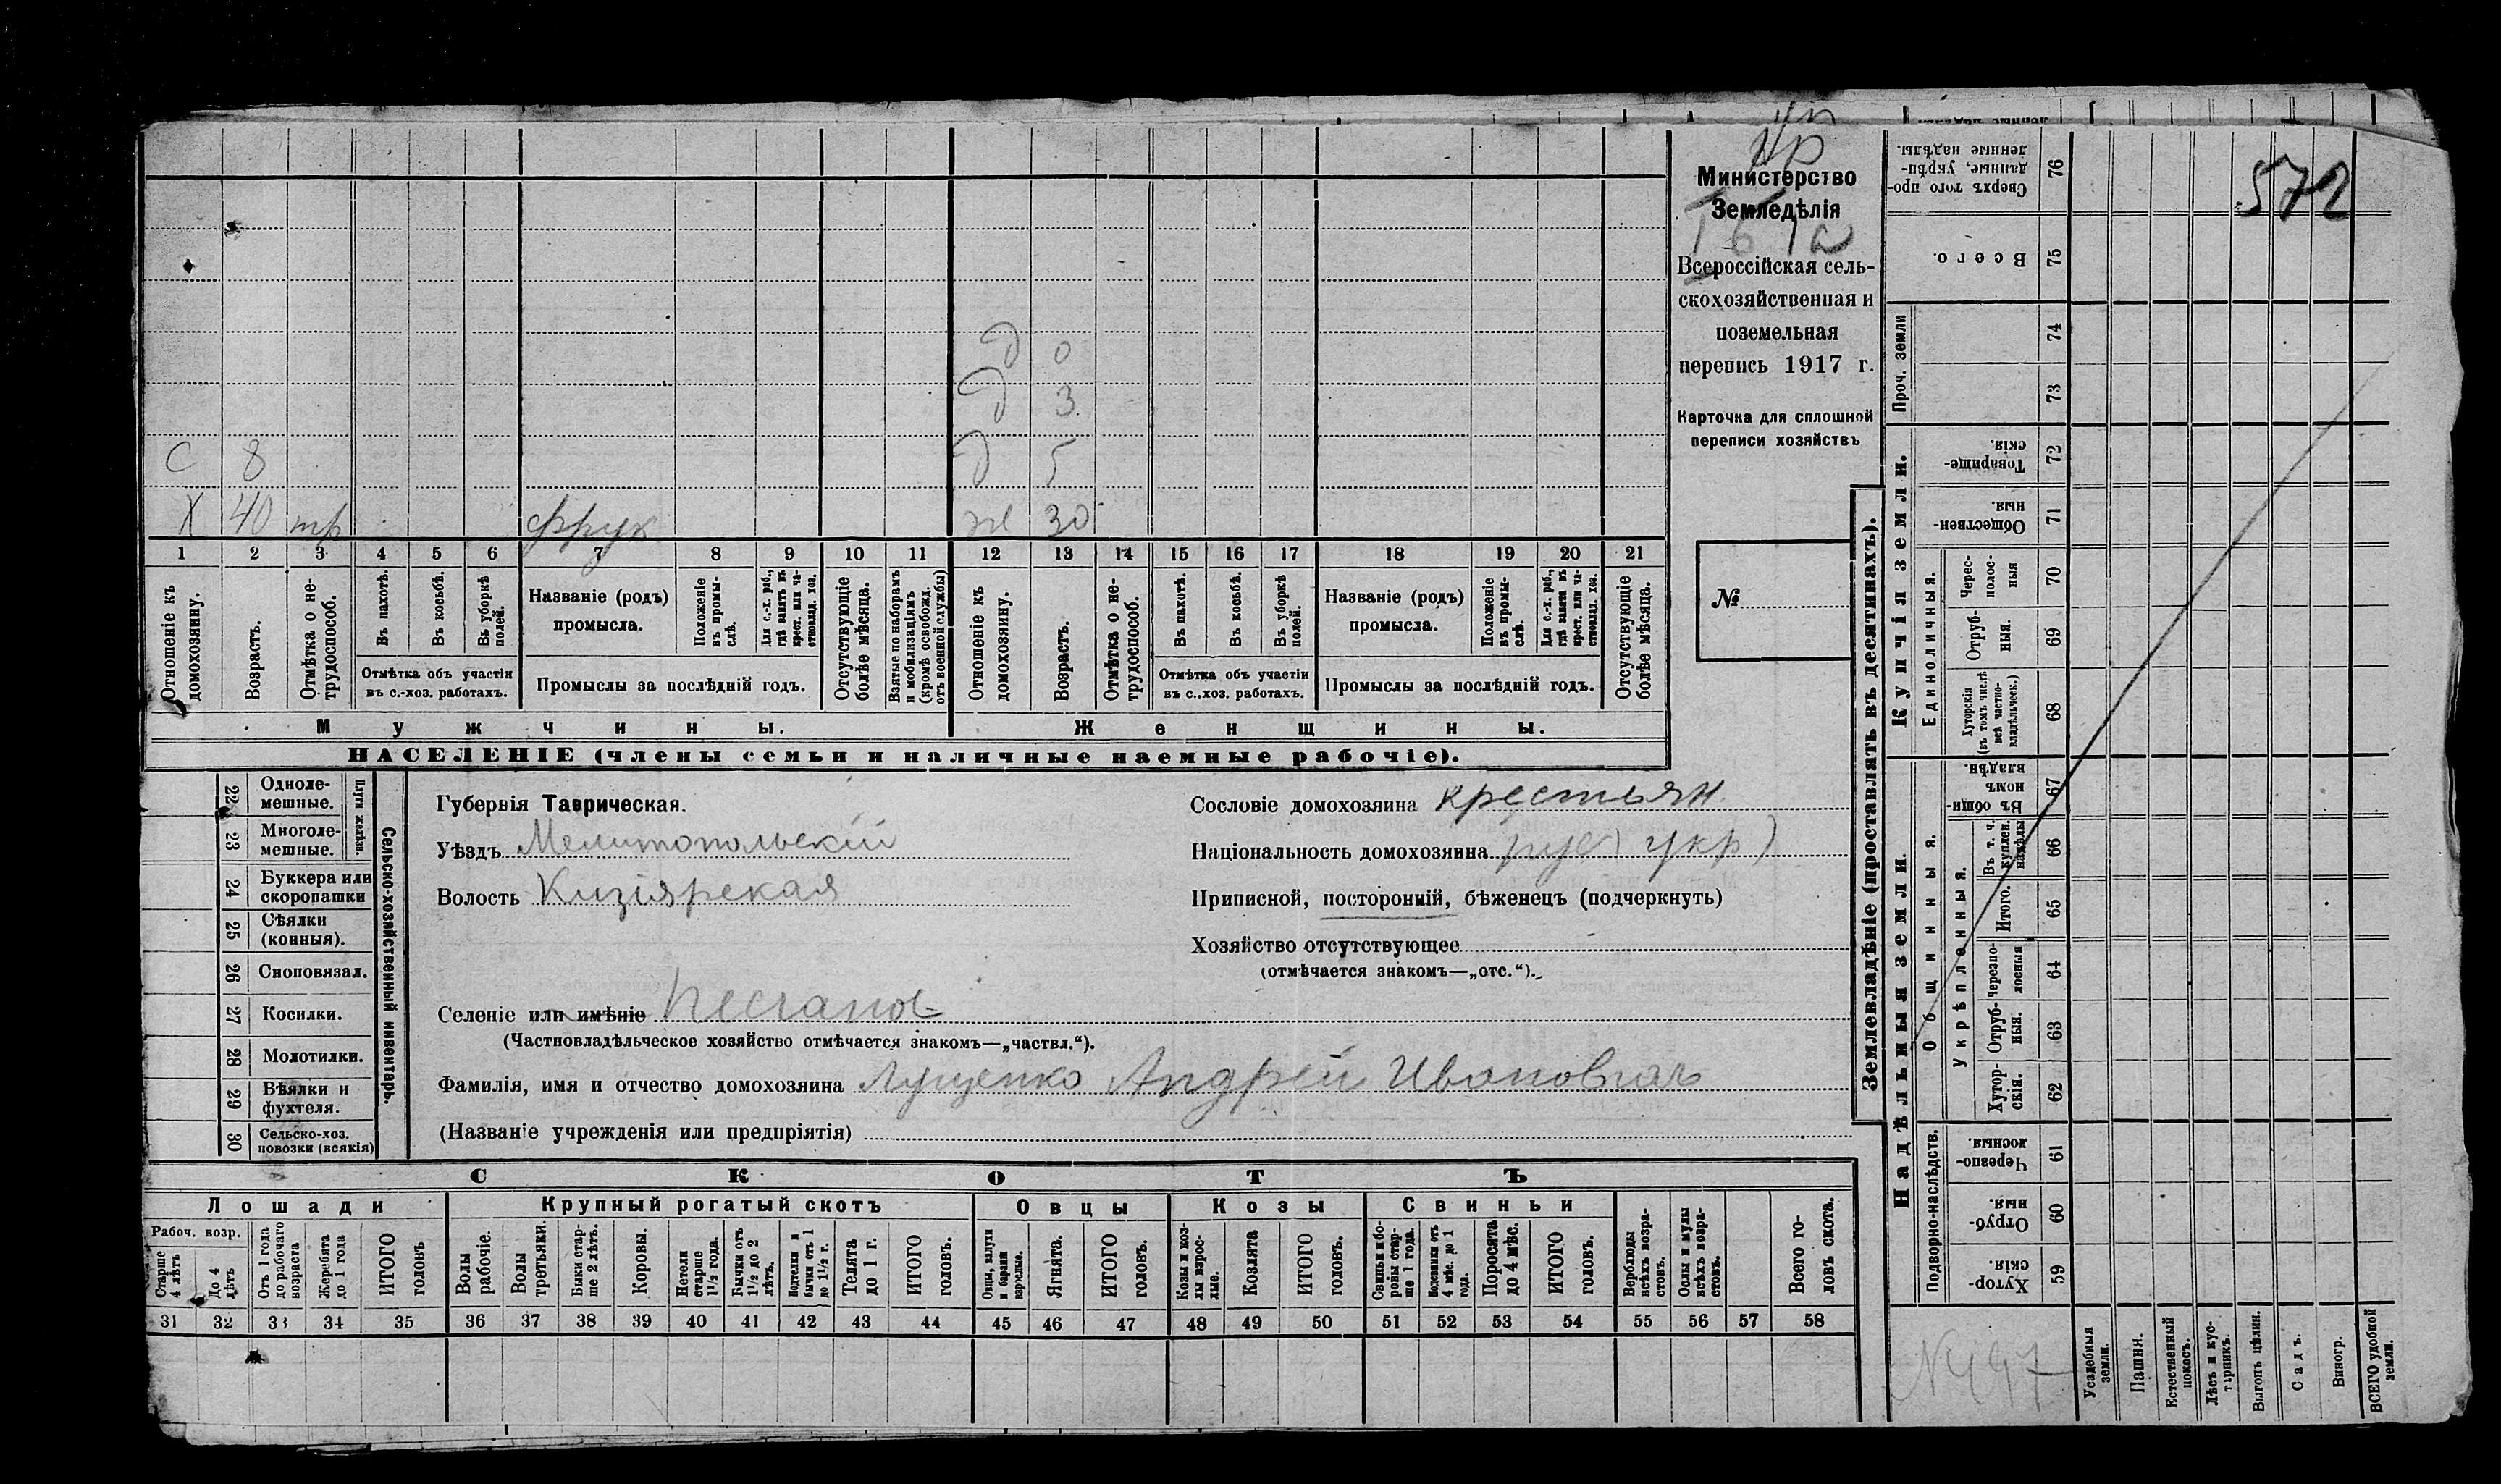 Нр
Министерство
Земледѣлія
Всероссійская сель-
скохозяйственная и
поземельная
перепись 1917 г.
Карточка для сплошной
переписи хозяйствъ
№
572
д 0
д 3
С 8 д 5
Х 40 тр фрук ж 30
1 2 3 4 5 6 7 8 9 10 11 12 13 14 15 16 17 18 19 20 21
Отношеніе къ домохозяину.
Возрастъ.
Отмѣтка о не-трудоспособ.
Въ пахотѣ.
Въ косьбѣ.
Въ уборкѣ полей.
Отмѣтка объ участіи
въ с.-хоз. работахъ.
Названіе (родъ)
промысла.
Положеніе въ промы-слѣ.
Для с.-х. раб., гдѣ занятъ въ крест. или ча-стновлад. хоз.
Промыслы за послѣдній годъ.
Отсутствующіе болѣе мѣсяца.
Взятые по наборамъ и мобилизаціямъ (кромѣ освобожд. отъ военной службы)
Отношеніе къ домохозяину.
Возрастъ.
Отмѣтка о не-трудоспособ.
Въ пахотѣ.
Въ косьбѣ.
Въ уборкѣ полей.
Отмѣтка объ участіи
въ с..хоз. работахъ.
Названіе (родъ)
промысла.
Положеніе въ промы-слѣ.
Для с.-х. раб., гдѣ занята въ крест. или ча-стновлад. хоз.
Промыслы за послѣдній годъ.
Отсутствующіе болѣе мѣсяца.
Мужчины.
Женщины.
НАСЕЛЕНІЕ (члены семьи и наличные наемные рабочіе).
22 Одноле-мешные.
23 Многоле-мешные.
Плуги желѣзн.
24 Буккера или скоропашки
25 Сѣялки (конныя).
26 Сноповязал.
27 Косилки.
28 Молотилки.
29 Вѣялки и фухтеля.
30 Сельско-хоз. повозки (всякія)
Сельско-хозяйственный инвентарь.
Губернія Таврическая.
Уѣздъ Мелитопольскій
Волость Кизіярская
Селеніе или имѣніе
(Частновладѣльческое хозяйство отмѣчается знакомъ—„частвл.“).
Фамилія, имя и отчество домохозяина Лущенко Андрей Ивановичъ
(Названіе учрежденія или предпріятія)
Сословіе домохозяина крестьян.
Національность домохозяина рус (укр)
Приписной, посторонній, бѣженецъ (подчеркнуть)
Хозяйство отсутствующее
(отмѣчается знакомъ—„отс.“).
СКОТЪ
Лошади
Крупный рогатый скотъ
Овцы
Козы
Свиньи
Рабоч. возр.
Старше 4 лѣтъ
До 4 лѣтъ
Отъ 1 года до рабочаго возраста
Жеребята до 1 года
ИТОГО головъ
Волы рабочіе.
Волы третьяки.
Быки стар-ше 2 лѣтъ.
Коровы.
Нетели старше 1½ года.
Бычки отъ 1½ до 2 лѣтъ.
Подтелки и бычки отъ 1 до 1½ г.
Телята до 1 г.
ИТОГО головъ.
Овцы, валухи и бараны взрослые.
Ягнята.
ИТОГО головъ.
Козы и коз-лы взрос-лые.
Козлята
ИТОГО головъ.
Свиньи и бо-ровы стар-ше 1 года.
Подсвинки отъ 4 мѣс. до 1 года.
Поросята до 4 мѣс.
ИТОГО головъ.
Верблюды всѣхъ возра-стовъ.
Ослы и мулы всѣхъ возра-стовъ.
Всего го-ловъ скота.
31 32 33 34 35 36 37 38 39 40 41 42 43 44 45 46 47 48 49 50 51 52 53 54 55 56 57 58
Землевладѣніе (проставлять въ десятинахъ).
Сверхъ того про-данные, укрѣп-ленные надѣлы. 76
Всего. 75
Проч. земли
74
73
Купчія земли.
Товарище-скія. 72
Обществен-ныя 71
Единоличныя.
Черес-полос-ныя 70
Отруб-ныя. 69
Хуторскія (въ томъ числѣ всѣ частно-владѣльческ.) 68
Надѣльныя земли.
Общинныя.
Въ общи-номъ владѣн. 67
Укрѣпленныя.
Въ т. ч. куплен. надѣлы 66
Итого. 65
Черезпо-лосныя 64
Отруб-ныя. 63
Хутор-скія. 62
Подворно-наслѣдств.
Черезпо-лосныя. 61
Отруб-ныя. 60
Хутор-скія. 59
№497
Усадебныя земли.
Пашня.
Естественный покосъ.
Лѣсъ и кус-тарникъ.
Выгонъ цѣлин.
Садъ.
Виногр.
ВСЕГО удобной земли.